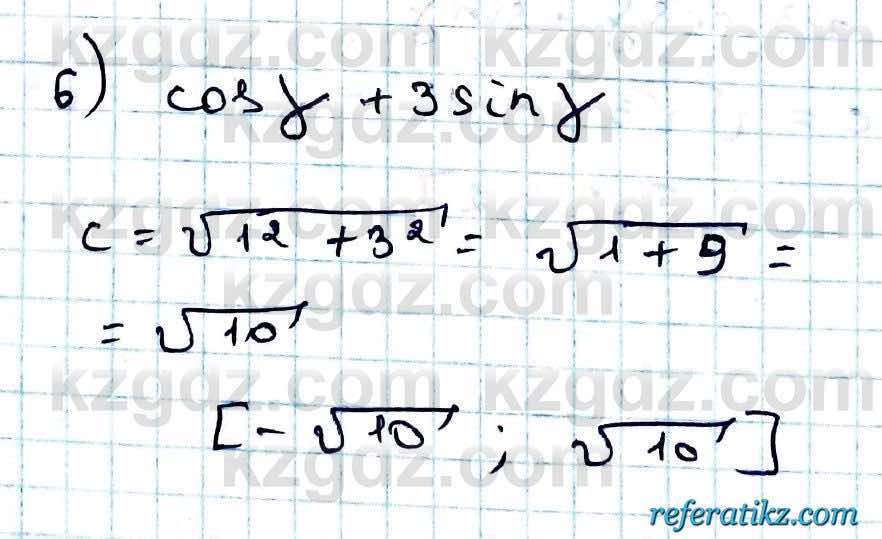 kzgdz.com kzgdz.com
б) cos γ + 3 sin γ
kzgdz.com
kzgdz.com kzgdz.com
c = √(1² + 3²) = √(1 + 9) =
kzgdz.com
= √10
kzgdz.com kzgdz.com
[-√10 ; √10]
kzgdz.com
referatikz.com